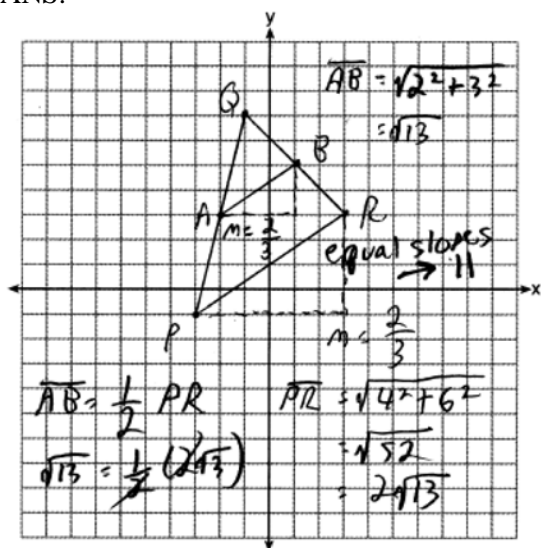 ANS:
y
Q
AB = √2² + 3²
= √13
B
A
m = 2/3
R
equal slopes
→ ||
x
P
m = 2/3
AB = 1/2 PR
√13 = 1/2 (2√13)
PR = √4² + 6²
= √52
= 2√13